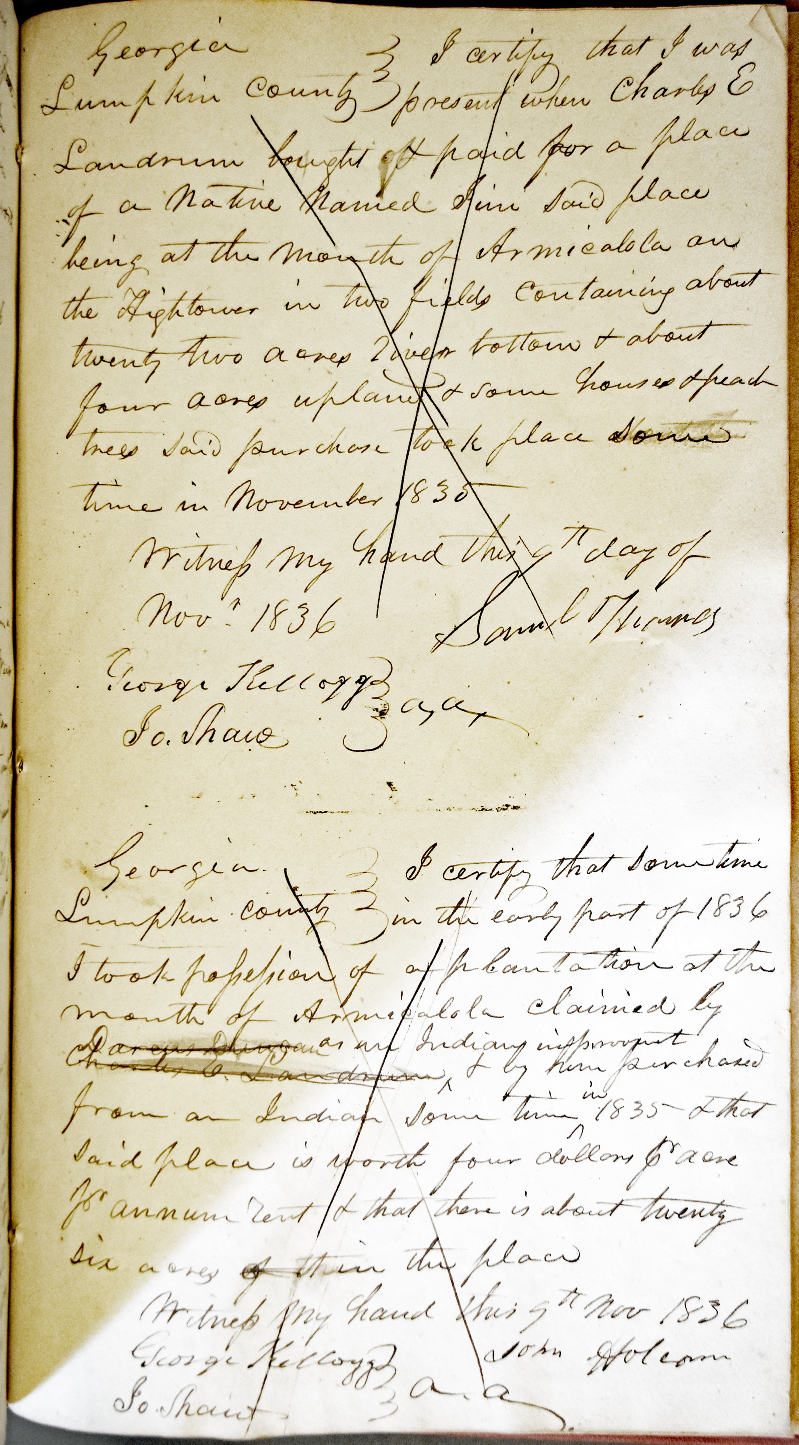 Georgia } I certify that I was
Lumpkin County } present when Charles E
Landrum bought & paid for a place
of a Native Named Jim said place
being at the Mouth of Armicalola on
the Hightower in two fields Containing about
twenty two acres River bottom & about
four acres upland & some houses & peach
trees said purchase took place some
time in November 1835
Witness My hand this 9th day of
Novr. 1836 Saml Thomas
George Kellogg } a, a,
Jo. Shaw
Georgia } I certify that some time
Lumpkin County } in the early part of 1836
I took possession of a plantation at the
mouth of Armicalola claimed by
as an Indian improvment
Charles E. Landrum, & by him purchased
from an Indian some time in 1835 & that
said place is worth four dollars pr acre
pr annum Rent & that there is about twenty
six acres in the place
Witness My hand this 9th Nov 1836
George Kellogg } a. a John Holcom
Jo. Shaw